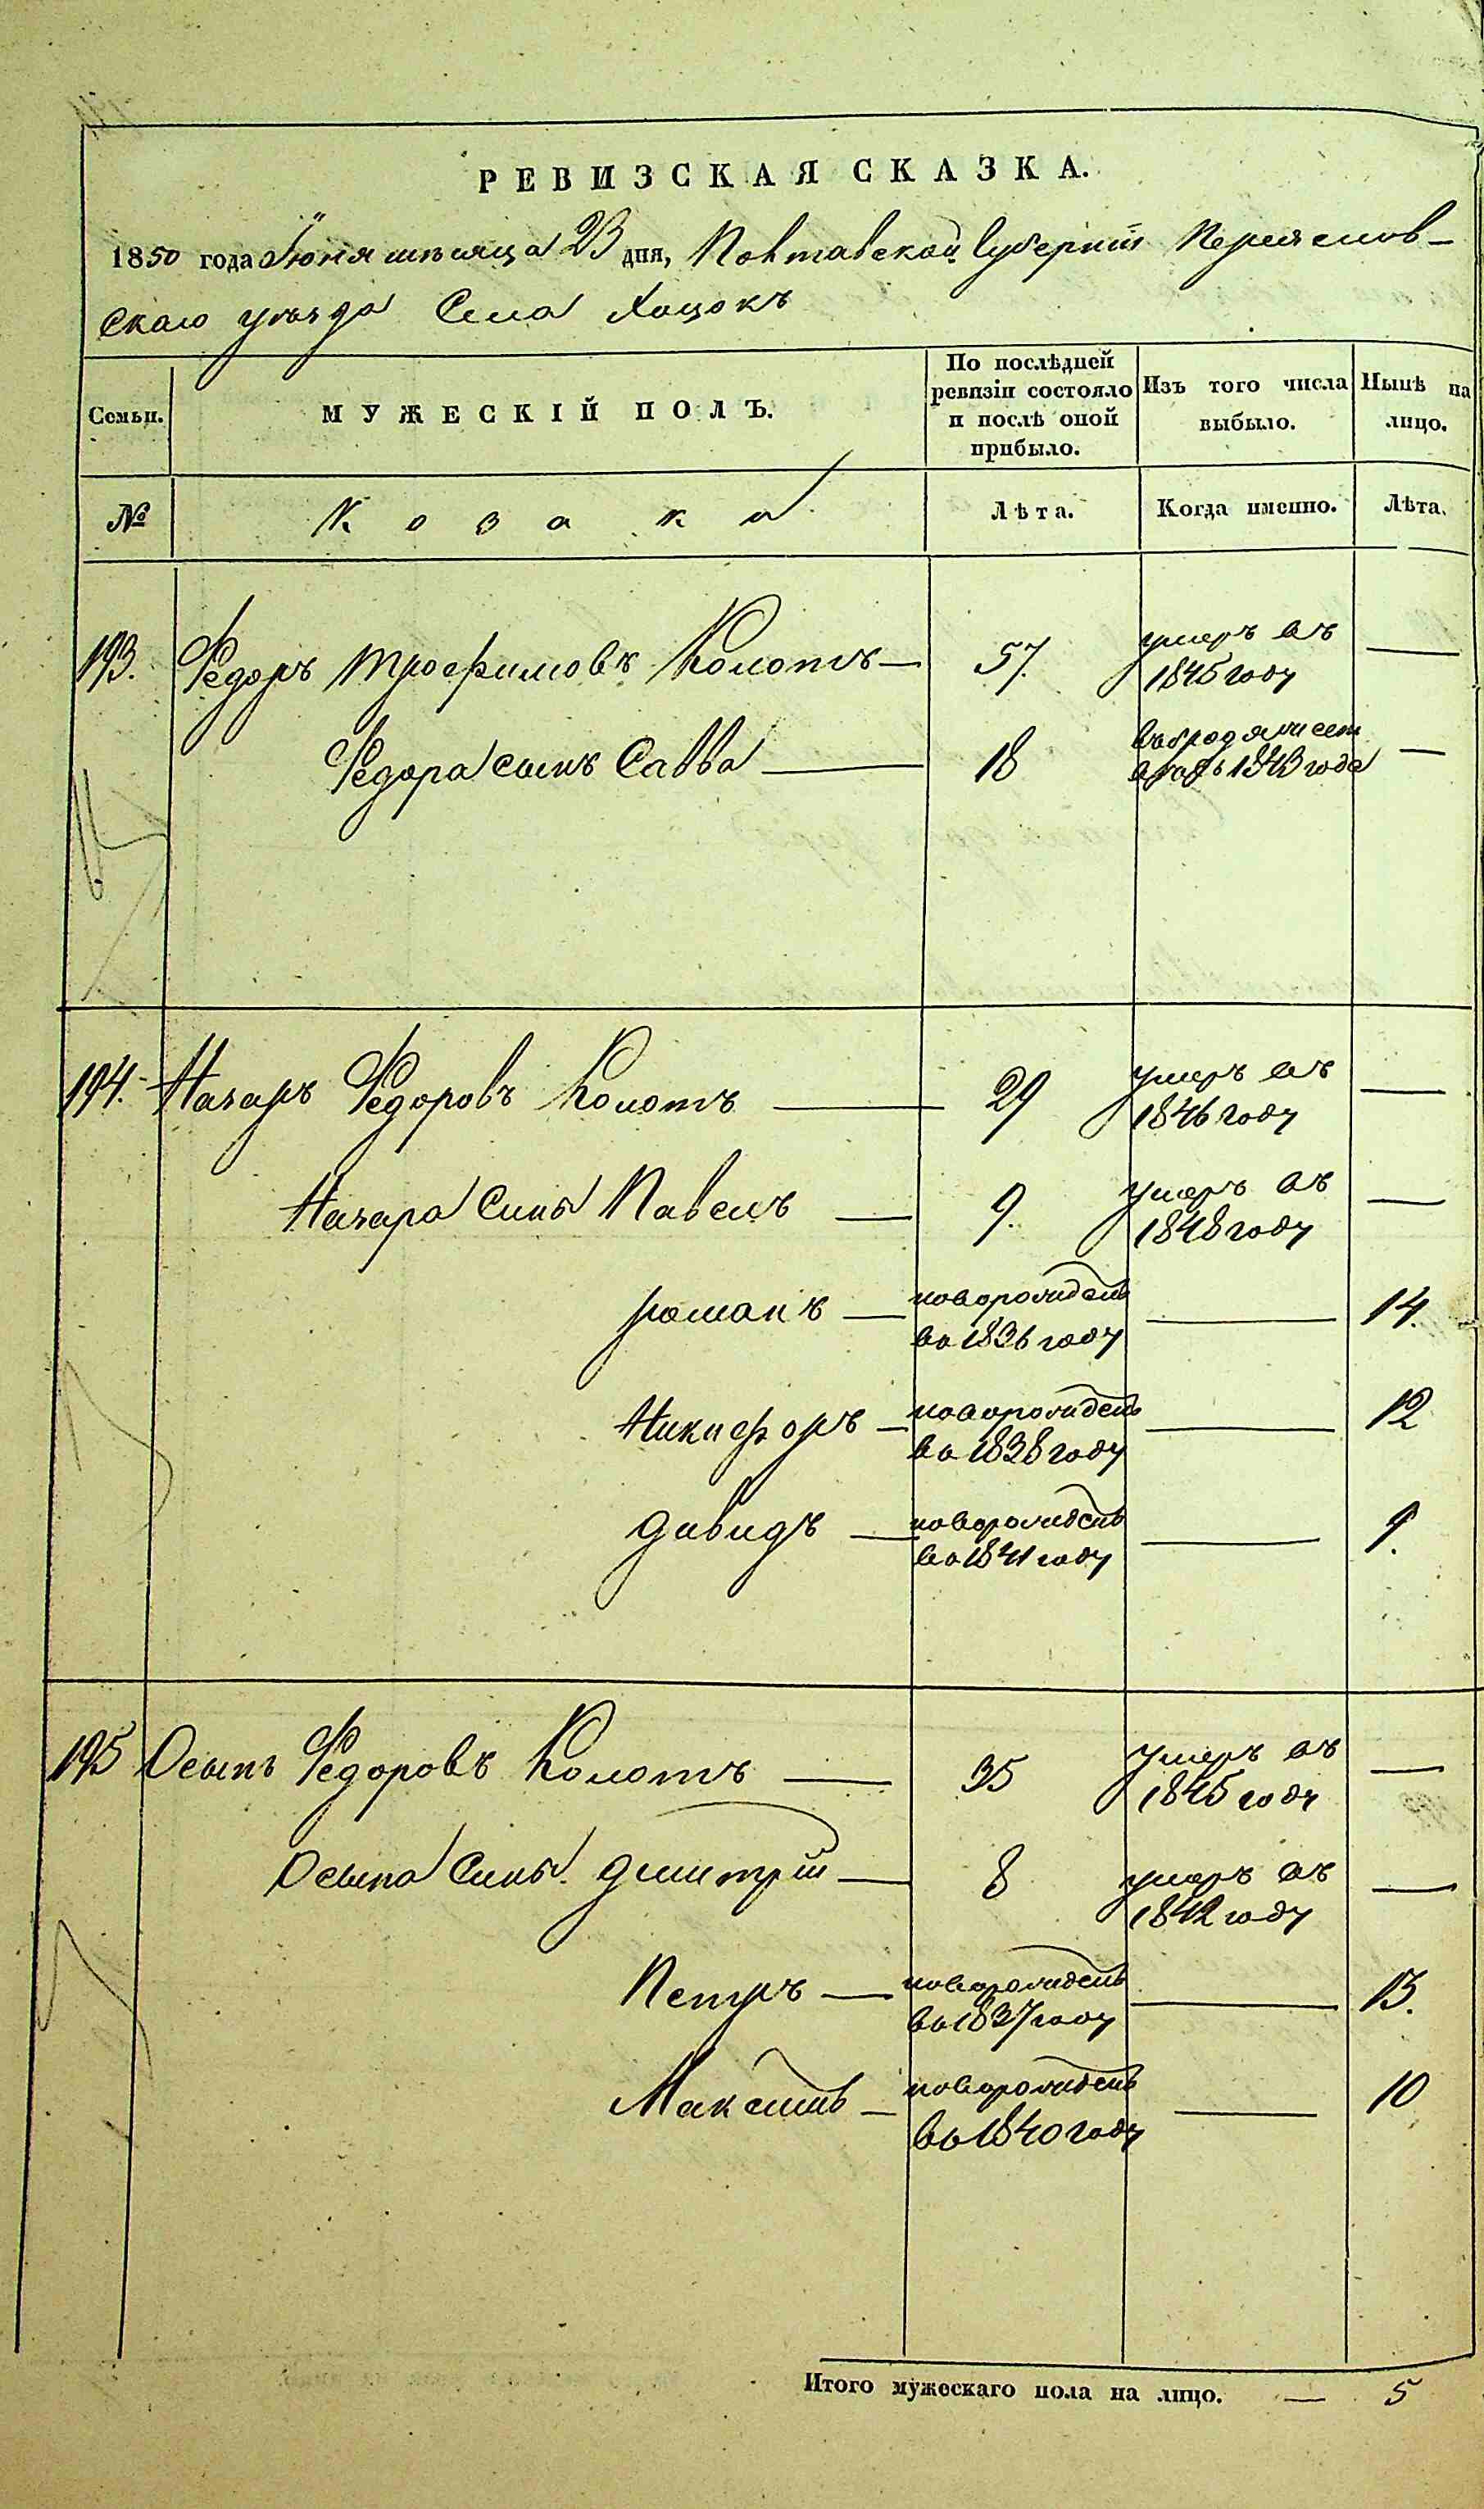 РЕВИЗСКАЯ СКАЗКА.
1850 года Іюня мѣсяца 23 дня, Полтавской Губерніи Переяслов-
скаго уѣзда Села Хоцокъ
Семьи.
МУЖЕСКІЙ ПОЛЪ.
По послѣдней ревизіи состояло и послѣ оной прибыло.
Изъ того числа выбыло.
Нынѣ на лицо.
№
Козаки
Лѣта.
Когда именно.
Лѣта.
193. Федоръ Трофимовъ Коломъ — 57. умеръ въ —
1845 году
Федора сынъ Савва — 18 —
1843 года
194. Назаръ Федоровъ Коломъ — 29 умеръ въ —
1846 году
Назара Сынъ Павелъ — 9. умеръ въ —
1848 году
романъ — новорожденъ — 14.
во 1836 году
Никифоръ — новорожденъ — 12
во 1838 году
давидъ — новорожденъ — 9.
во 1841 году
195 Осыпъ Федоровъ Коломъ — 35 умеръ въ —
1845 году
Осыпа Сынъ. дмитрій — 8 умеръ въ —
1842 году
Петръ — новорожденъ — 13.
во 1837 году
Максимъ — новорожденъ — 10
во 1840 году
Итого мужескаго пола на лицо. — 5